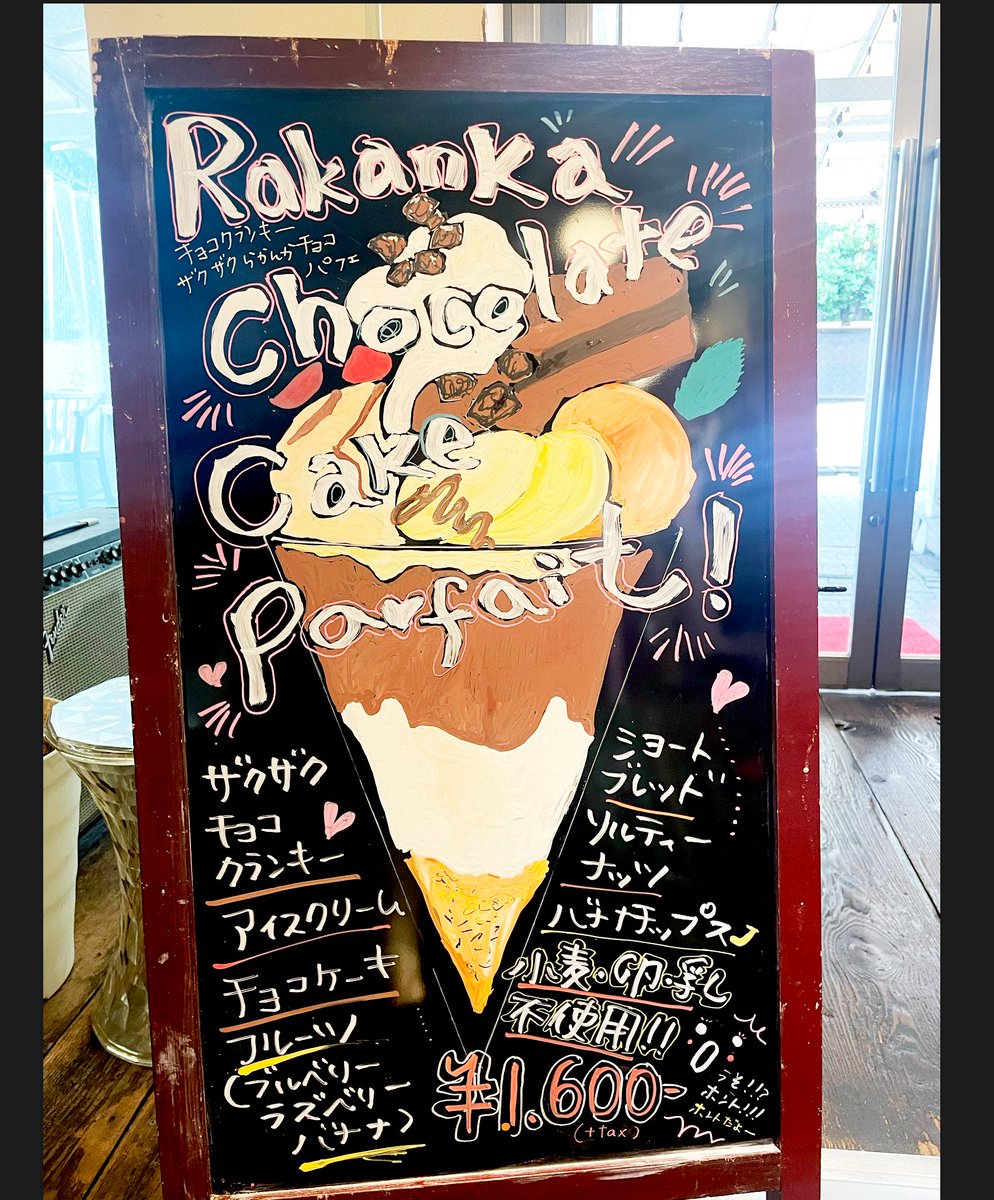 Rakanka
チョコクランキー
ザクザクらかんかチョコ
パフェ
Chocolate
Cake
Parfait!
ザクザク
チョコ
クランキー
アイスクリーム
チョコケーキ
フルーツ
(ブルベリー
ラズベリー
バナナ)
ショート
ブレッド
ソルティー
ナッツ
バナナチップス♪
小麦・卵・乳
不使用!!
¥1.600-
(+tax)
うそ!!?
ホント!!!
ホントだよー
Fender